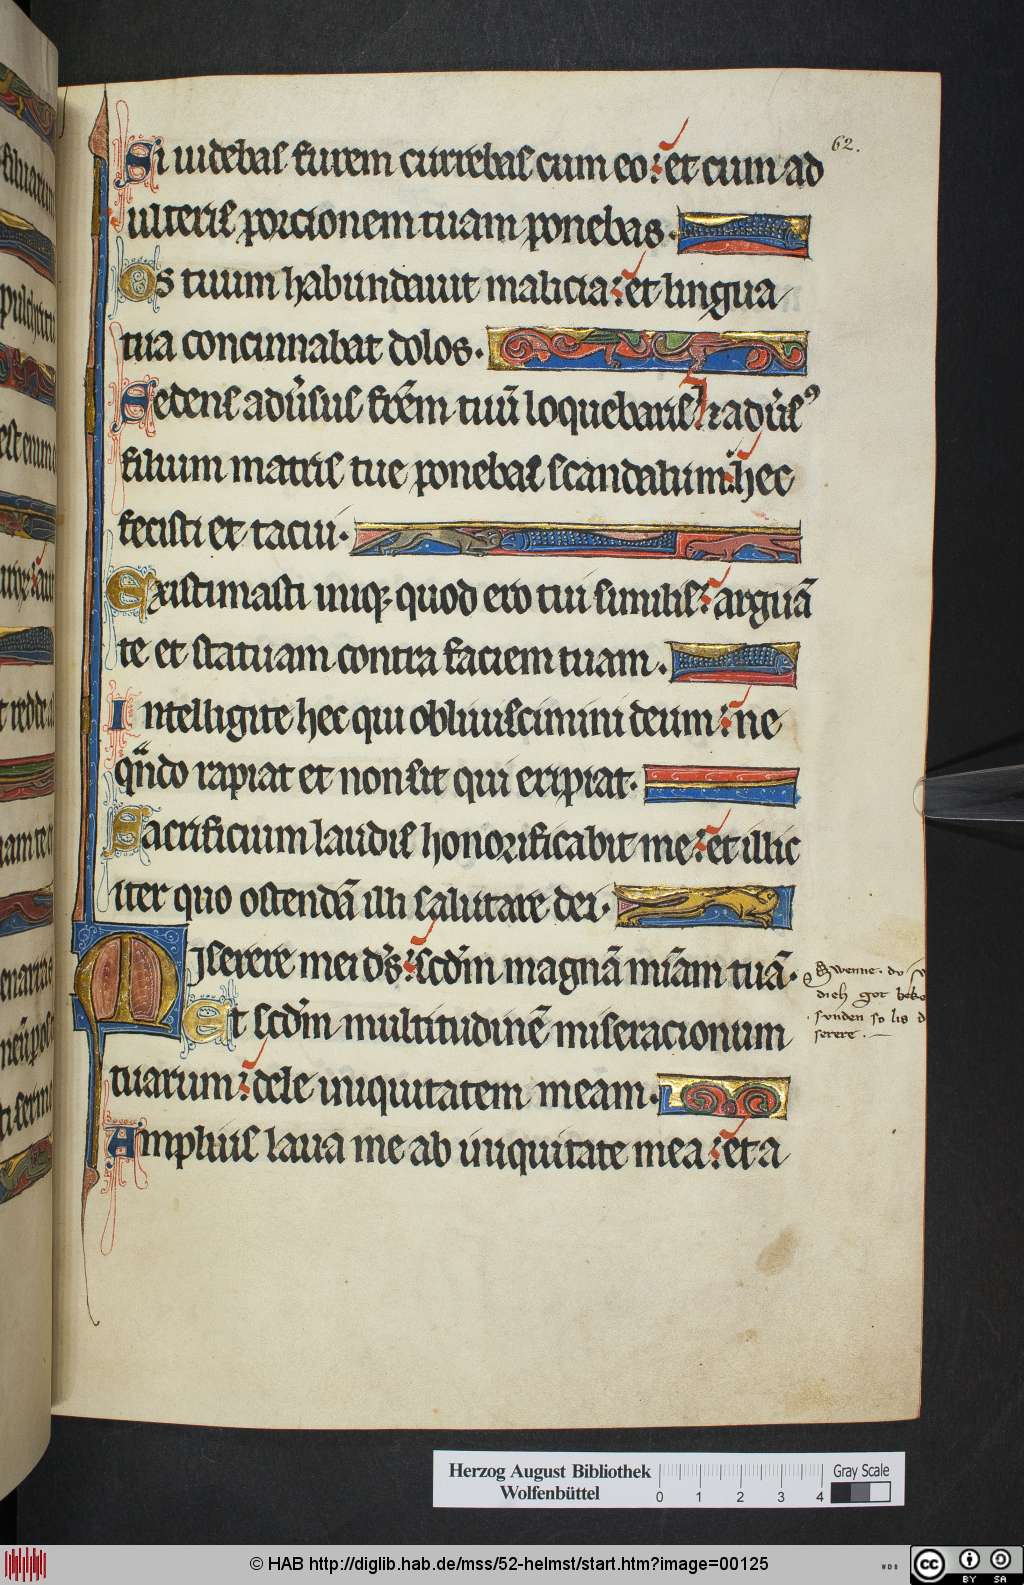 62.
Si uidebas furem currebas cum eo: et cum ad
ulteris porcionem tuam ponebas.
Os tuum habundauit malicia: et lingua
tua concinnabat dolos.
Sedens adu̾sus fr̄em tuū loquebaris et adu̾sꝰ
filium matris tue ponebas scandalum: hec
fecisti et tacui.
Existimasti iniq; quod ero tui similis: arguā
te et statuam contra faciem tuam.
Intelligite hec qui obliuiscimini deum: ne
qn̄do rapiat et non sit qui eripiat.
Sacrificium laudis honorificabit me: et illic
iter quo ostendā illi salutare dei.
Miserere mei d̄s: scd̄m magnā mīam tuā.
Et scd̄m multitudinē miseracionum
tuarum: dele iniquitatem meam.
Amplius laua me ab iniquitate mea: et a
Swenne. dv
dich got beke
svnden so lis d
serere.
pulchritu
est enim
Herzog August Bibliothek
Wolfenbüttel
0 1 2 3 4
Gray Scale
© HAB http://diglib.hab.de/mss/52-helmst/start.htm?image=00125
WDB
cc BY SA